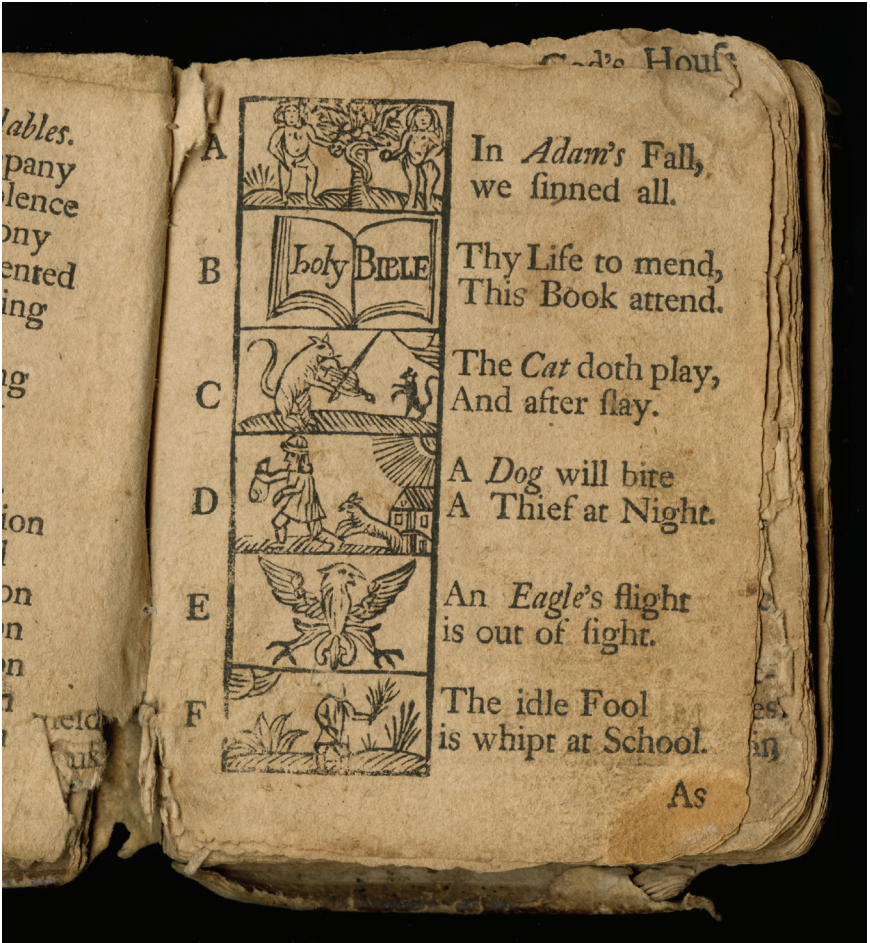 lables.
pany
lence
ony
ented
ing
ng
ion
on
on
on
God's Houſe
A
In Adam's Fall,
we ſinned all.
B
holy BIBLE
Thy Life to mend,
This Book attend.
C
The Cat doth play,
And after ſlay.
D
A Dog will bite
A Thief at Night.
E
An Eagle's flight
is out of ſight.
F
The idle Fool
is whipt at School.
As